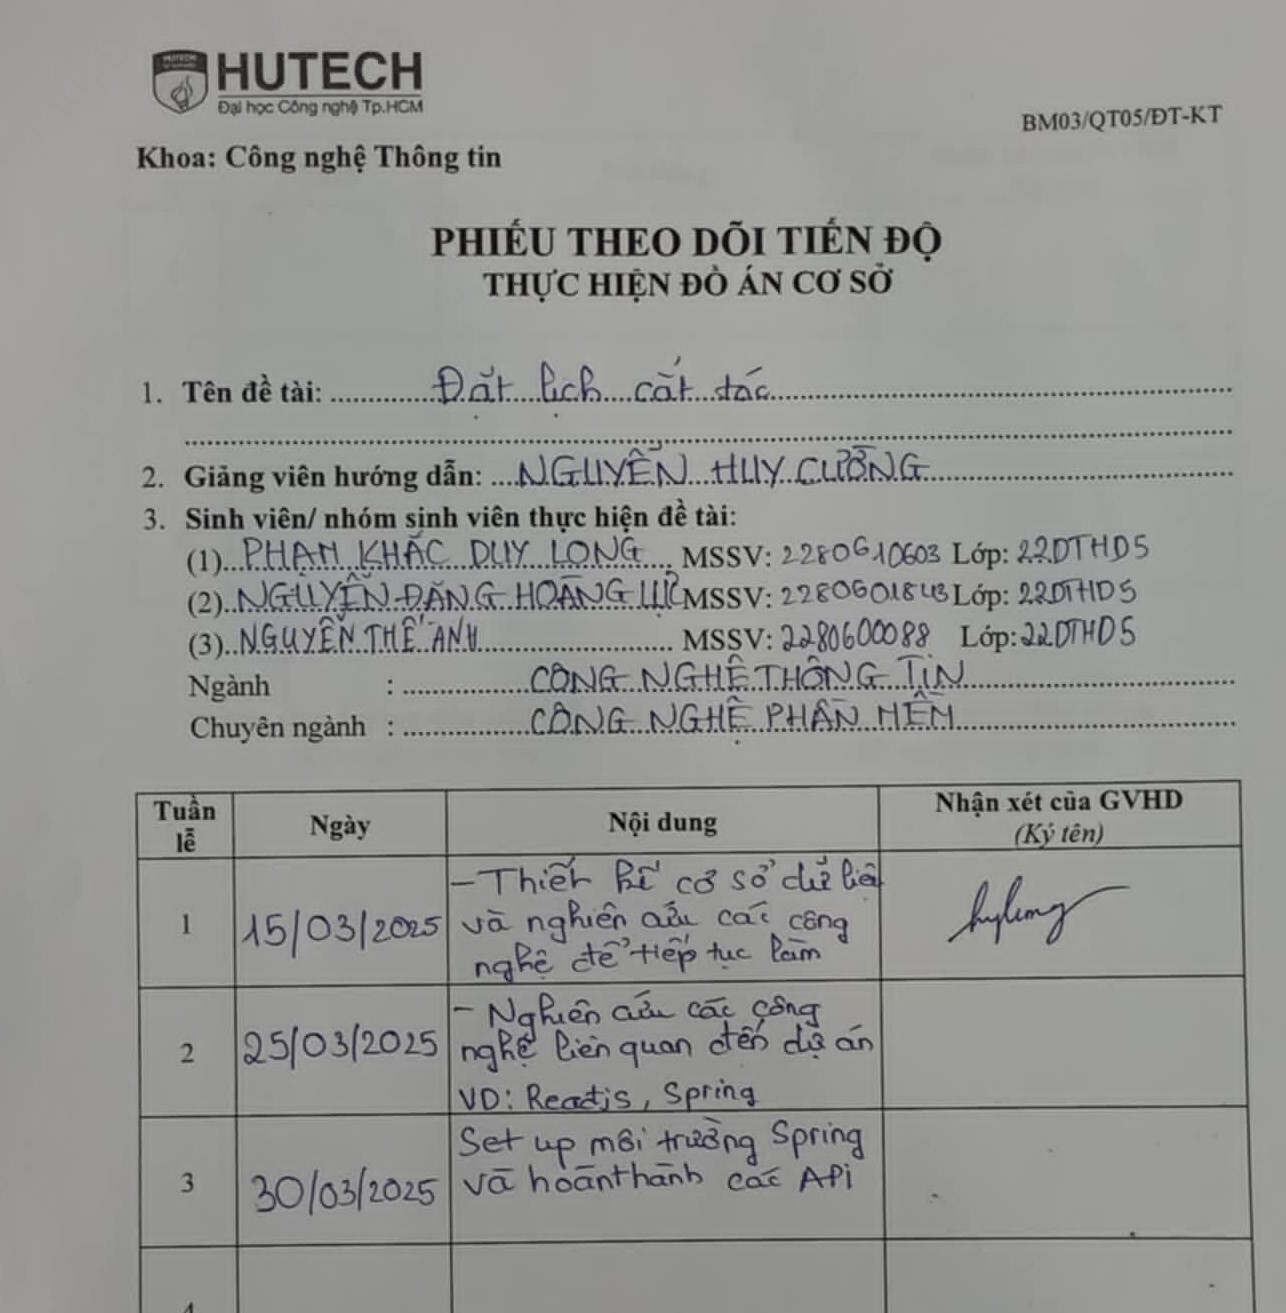 HUTECH
Đại học Công nghệ Tp.HCM
BM03/QT05/ĐT-KT
Khoa: Công nghệ Thông tin
PHIẾU THEO DÕI TIẾN ĐỘ
THỰC HIỆN ĐỒ ÁN CƠ SỞ
1. Tên đề tài: Đặt lịch cắt tóc
2. Giảng viên hướng dẫn: NGUYỄN HUY CƯỜNG
3. Sinh viên/ nhóm sinh viên thực hiện đề tài:
(1) PHẠM KHẮC DUY LONG MSSV: 2280610603 Lớp: 22DTHD5
(2) NGUYỄN ĐĂNG HOÀNG LỰC MSSV: 2280601843 Lớp: 22DTHD5
(3) NGUYỄN THẾ ANH MSSV: 2280600088 Lớp: 22DTHD5
Ngành : CÔNG NGHỆ THÔNG TIN
Chuyên ngành : CÔNG NGHỆ PHẦN MỀM
Tuần lễ Ngày Nội dung Nhận xét của GVHD
(Ký tên)
1 15/03/2025 – Thiết kế cơ sở dữ liệu
và nghiên cứu các công
nghệ để tiếp tục làm
2 25/03/2025 – Nghiên cứu các công
nghệ liên quan đến dự án
VD: Reactjs, Spring
3 30/03/2025 Set up môi trường Spring
và hoàn thành các APi
4